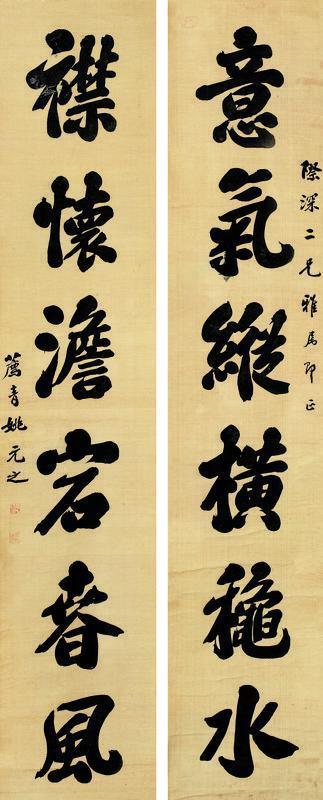 際深二兄雅屬即正
意氣縱橫龝水
襟懷澹宕春風
薦青姚元之